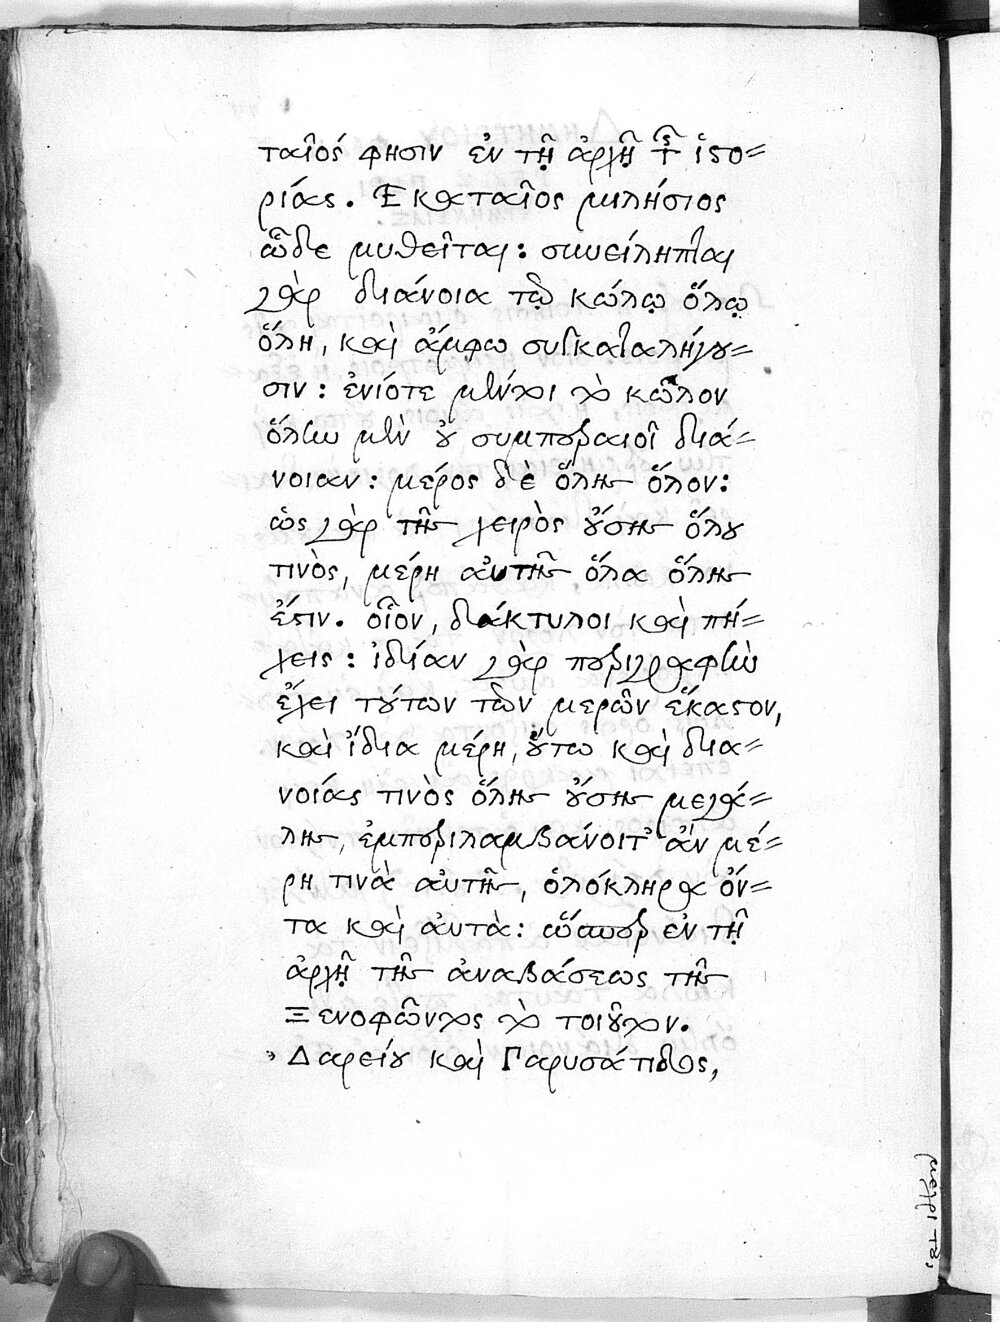 ταῖός φησιν ἐν τῇ ἀρχῇ τῆς ἱστο=
ρίας. Ἑκαταῖος μιλήσιος
ὧδε μυθεῖται: συνείληπται
γὰρ διάνοια τῷ κώλῳ ὅλῳ
ὅλη, καὶ ἄμφω συγκαταλήγου=
σιν: ἐνίοτε μέντοι τὸ κῶλον
ὅλην μὲν οὐ συμπεραιοῖ διά=
νοιαν: μέρος δὲ ὅλης ὅλον:
ὡς γὰρ τῆς χειρὸς οὔσης ὅλου
τινὸς, μέρη αὐτῆς ὅλα ὅλης
ἐστιν. οἷον, δάκτυλοι καὶ πή=
χεις: ἰδίαν γὰρ περιγραφὴν
ἔχει τούτων τῶν μερῶν ἕκαστον,
καὶ ἴδια μέρη, οὕτω καὶ δια=
νοίας τινὸς ὅλης οὔσης μεγά=
λης, ἐμπεριλαμβάνοιτ' ἂν μέ=
ρη τινὰ αὐτῆς, ὁλόκληρα ὄν=
τα καὶ αὐτὰ: ὥσπερ ἐν τῇ
ἀρχῇ τῆς ἀναβάσεως τῆς
Ξενοφῶντος τὸ τοιοῦτον.
Δαρείου καὶ Παρυσάτιδος,
μέχρι τοῦ,